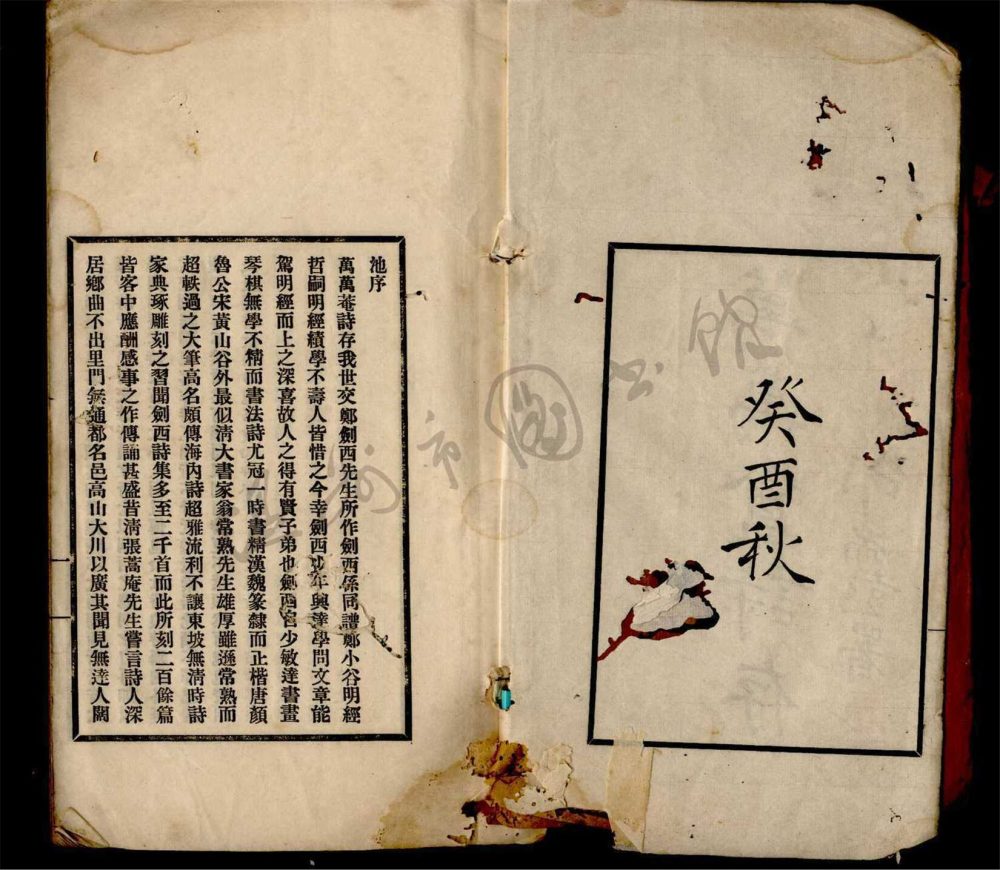 癸酉秋
池序
萬萬菴詩存我世交鄭劍西先生所作劍西係同譜鄭小谷明經
哲嗣明經績學不壽人皆惜之今幸劍西成年興學問文章能
駕明經而上之深喜故人之得有賢子弟也劍西少敏達書畫
琴棋無學不精而書法詩尤冠一時書精漢魏篆隸而正楷唐顏
魯公宋黃山谷外最似淸大書家翁常熟先生雄厚雖遜常熟而
超軼過之大筆高名頗傳海內詩超雅流利不讓東坡無淸時詩
家典琢雕刻之習聞劍西詩集多至二千首而此所刻二百餘篇
皆客中應酬感事之作傳誦甚盛昔淸張蒿庵先生嘗言詩人深
居鄉曲不出里門無通都名邑高山大川以廣其聞見無達人闊